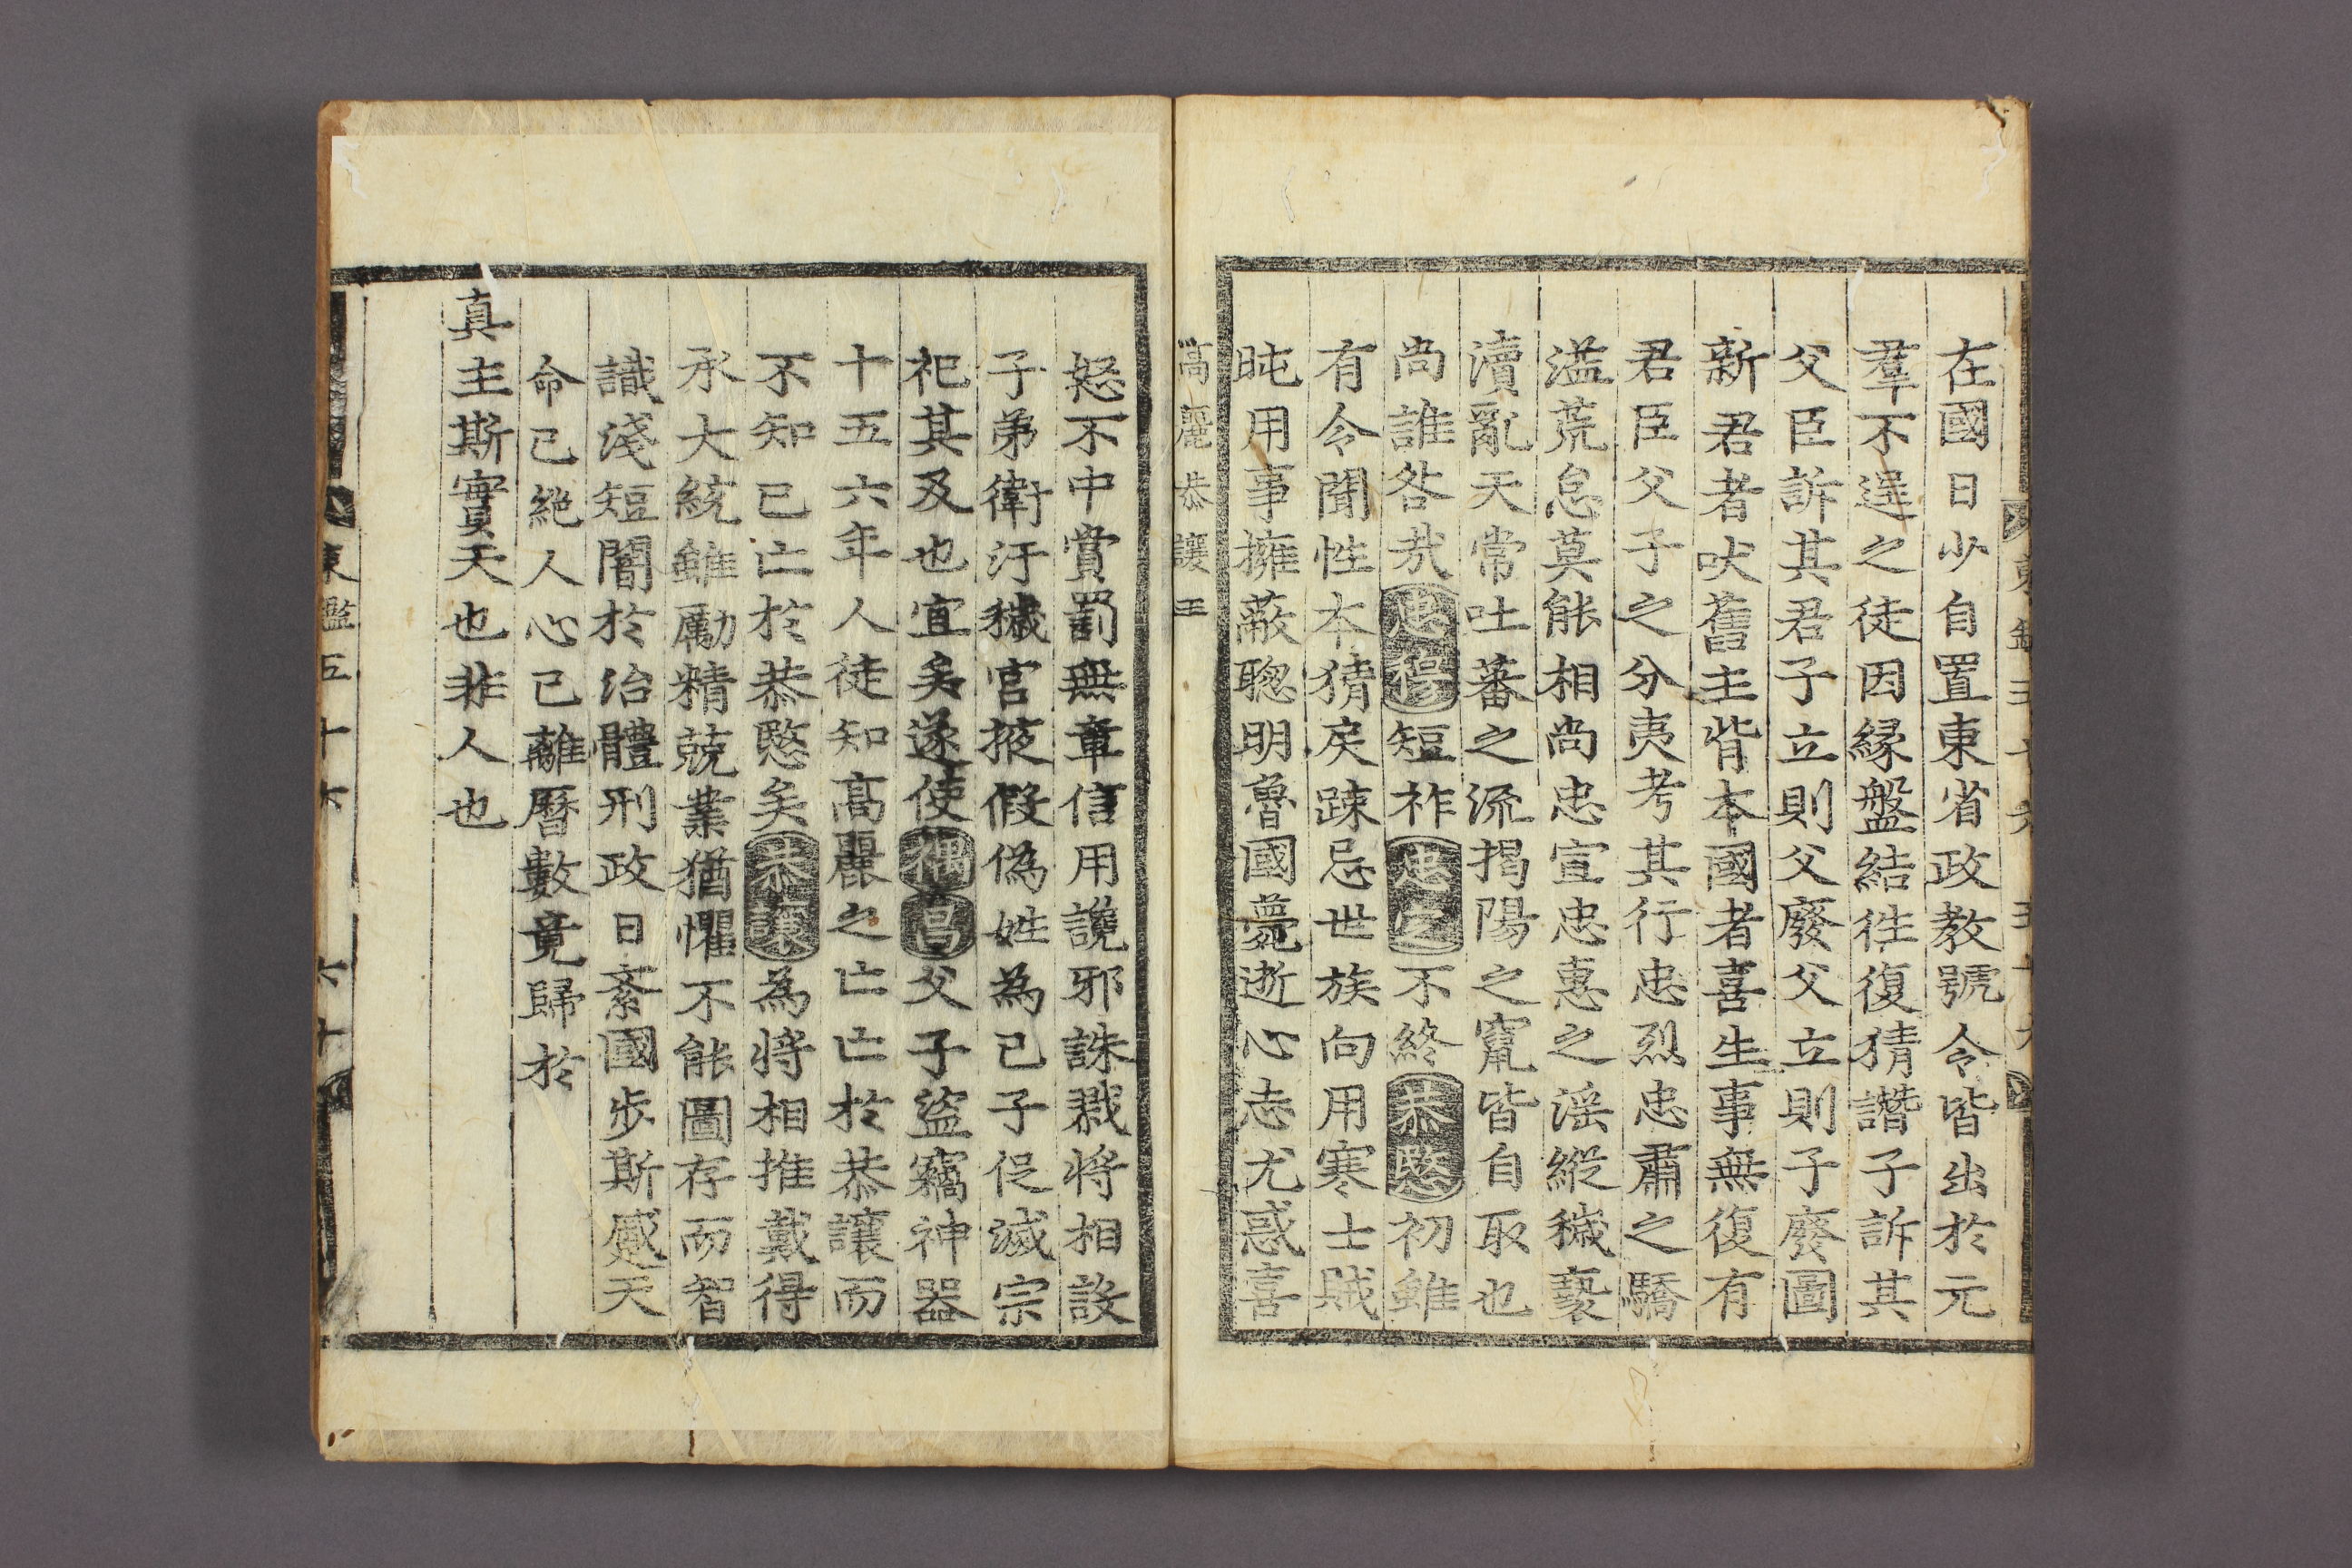 在國日少自置東省政教號令皆出於元
羣不逞之徒因緣盤結徃復猜譖子訴其
父臣訴其君子立則父廢父立則子廢圖
新君者吠舊主背本國者喜生事無復有
君臣父子之分夷考其行忠烈忠肅之驕
溢荒怠莫能相尚忠宣忠惠之淫縱穢䙝
瀆亂天常吐蕃之流揭陽之竄皆自取也
尚誰咎㢤忠穆短祚忠定不終恭愍初雖
有令聞性本猜戾踈忌世族向用寒士賊
旽用事擁蔽聦明魯國薨逝心志尤惑喜
高麗恭讓王
怒不中賞罰無章信用讒邪誅戮將相設
子弟衛汙穢宮掖假偽姓為己子促滅宗
祀其及也宜矣遂使禑昌父子盜竊神器
十五六年人徒知高麗之亡亡於恭讓而
不知已亡於恭愍矣恭讓為將相推戴得
承大統雖勵精兢業猶懼不能圖存而智
識淺短闇於治體刑政日紊國步斯蹙天
命已絕人心已離曆數竟歸於
真主斯實天也非人也
東鑑五十六
六十